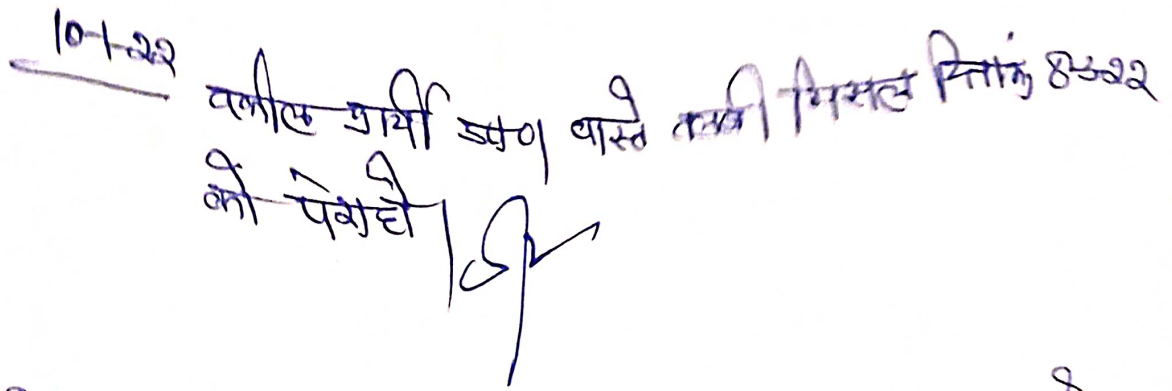 10-1-22
वकील प्रार्थी उप0। वास्ते तलबी मिसल दिनांक 8-3-22
को पेश हो।